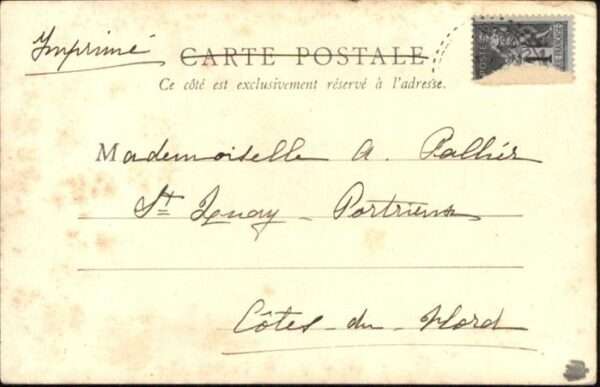 Imprimé
CARTE POSTALE
Ce côté est exclusivement réservé à l'adresse.
Mademoiselle A. Pallier
St Quay - Portrieux
Côtes-du-Nord
1